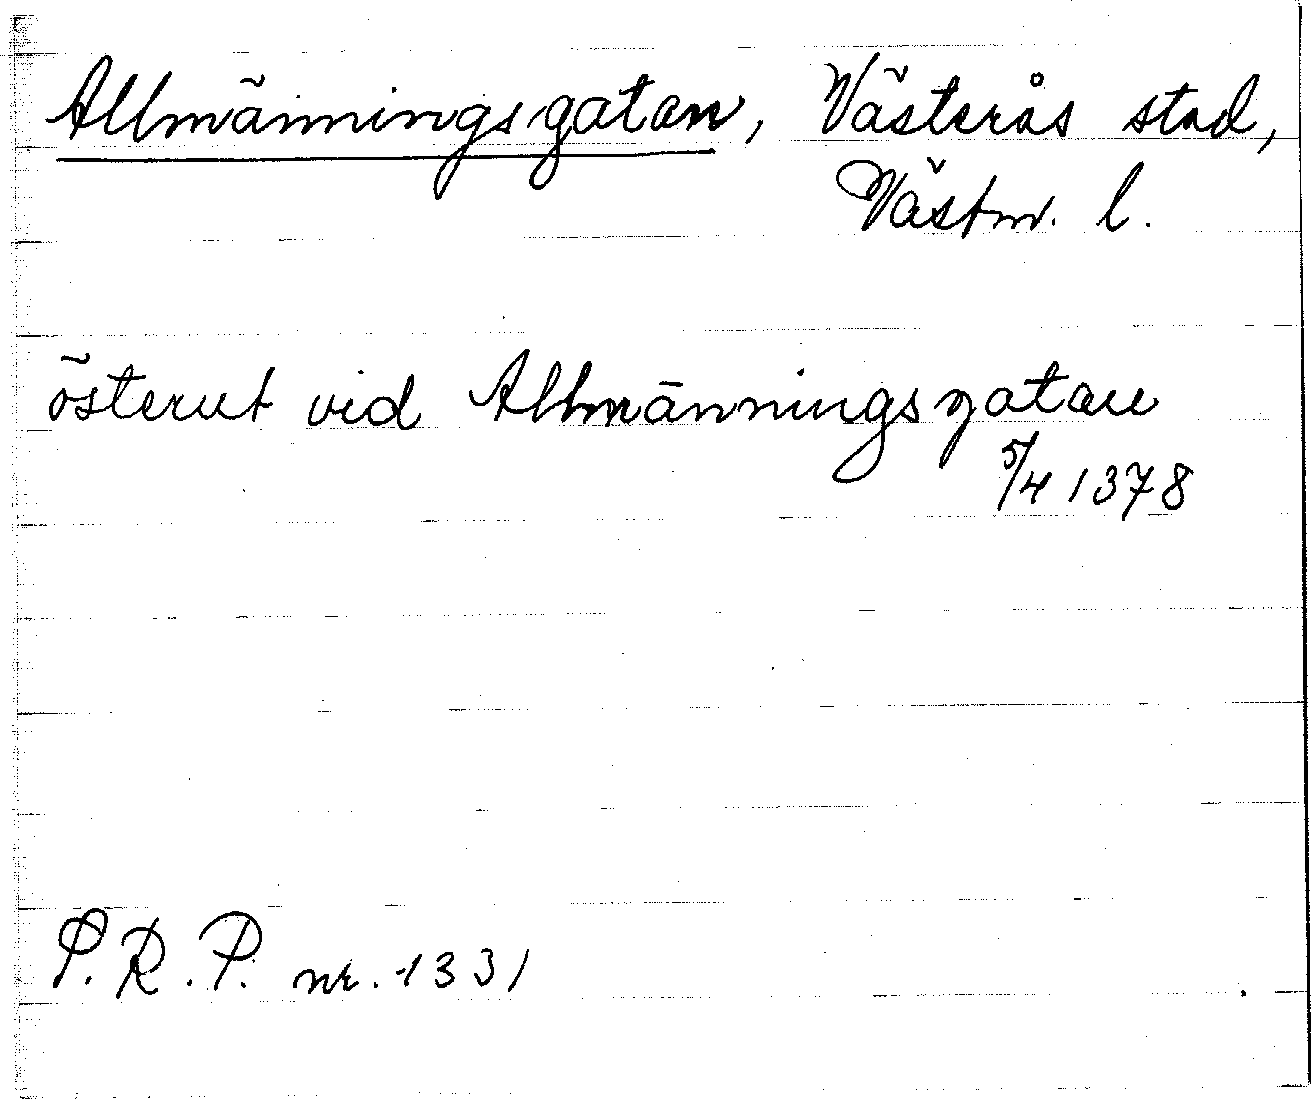 Allmänningsgatan, Västerås stad,
Västm. l.
österut vid Allmänningsgatan
5/4 1378
S.R.P. nr. 1331